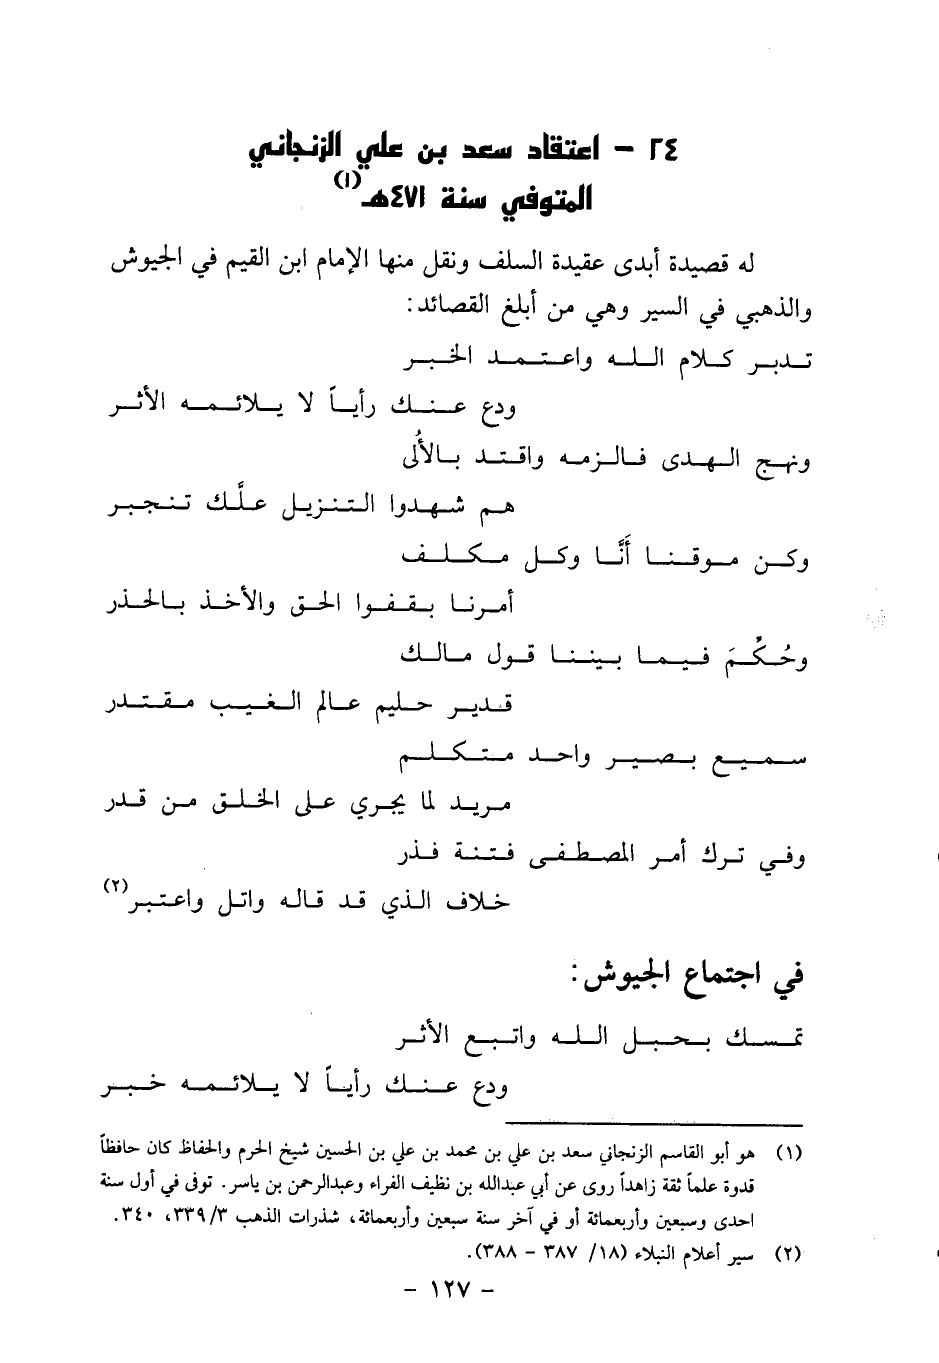 ٢٤ - اعتقاد سعد بن علي الزنجاني
المتوفي سنة ٤٧١هـ(١)
له قصيدة أبدى عقيدة السلف ونقل منها الإمام ابن القيم في الجيوش
والذهبي في السير وهي من أبلغ القصائد:
تـدبـر كـلام الـلـه واعـتـمـد الخـبـر
ودع عـنـك رأيـاً لا يـلائـمـه الأثـر
ونهـج الـهـدى فـالـزمـه واقـتـد بـالأُلى
هـم شـهـدوا الـتـنـزيـل علَّـك تـنـجـبـر
وكـن مـوقـنـا أَنَّـا وكـل مـكـلـف
أمـرنـا بـقـفـوا الحـق والأخـذ بـالحـذر
وحُـكِّـمَ فـيـمـا بـيـنـنـا قـول مـالـك
قـديـر حـلـيم عـالم الـغـيـب مـقـتـدر
سـمـيـع بـصـيـر واحـد مـتـكـلـم
مـريـد لما يجـري عـلى الخـلـق مـن قـدر
وفي تـرك أمـر المصـطـفـى فـتـنـة فـذر
خـلاف الـذي قـد قـالـه واتـل واعـتـبـر(٢)
في اجتماع الجيوش:
تمـسـك بـحـبـل الـلـه واتـبـع الأثـر
ودع عـنـك رأيـاً لا يـلائـمـه خـبـر
(١) هو أبو القاسم الزنجاني سعد بن علي بن محمد بن علي بن الحسين شيخ الحرم والحفاظ كان حافظاً
قدوة علماً ثقة زاهداً روى عن أبي عبدالله بن نظيف الفراء وعبدالرحمن بن ياسر. توفى في أول سنة
احدى وسبعين وأربعمائة أو في آخر سنة سبعين وأربعمائة، شذرات الذهب ٣٣٩/٣، ٣٤٠.
(٢) سير أعلام النبلاء (١٨/ ٣٨٧ - ٣٨٨).
- ١٢٧ -